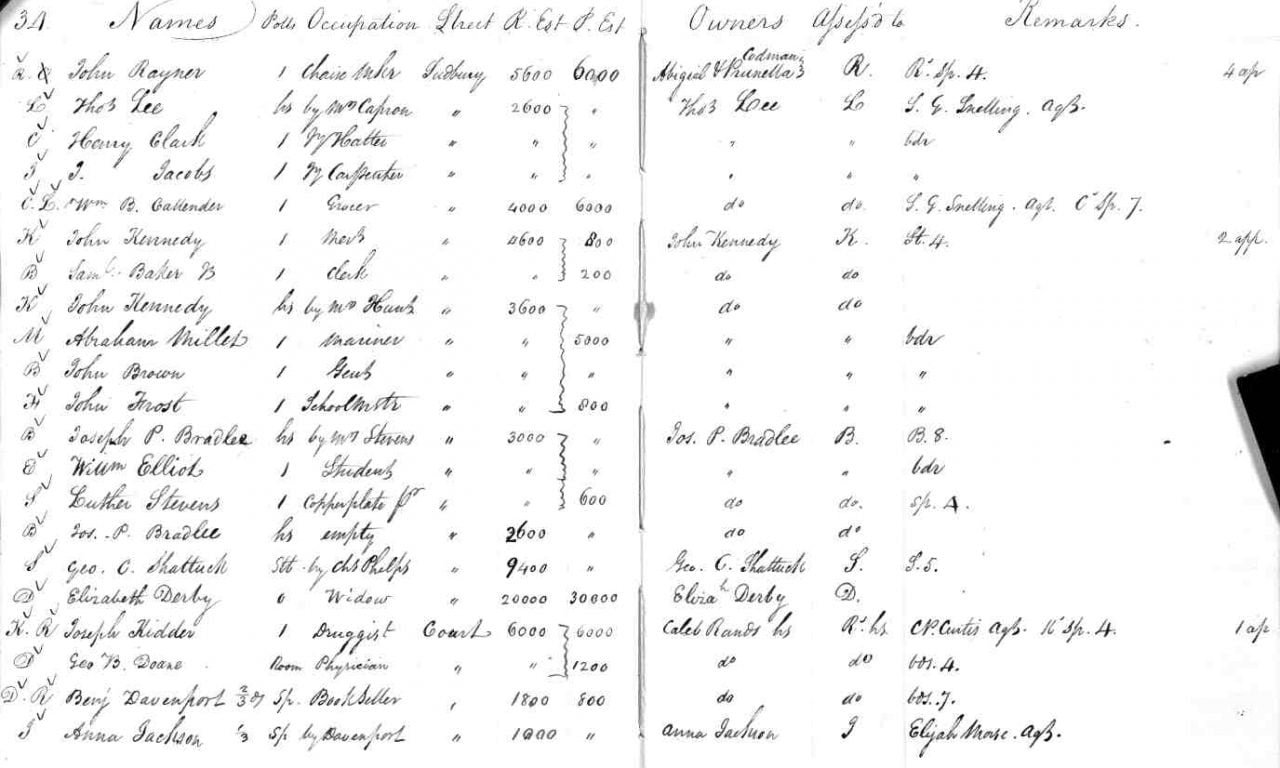 34 Names Polls Occupation Street R. Est P. Est Owners Assess'd to Remarks.
R. John Rayner 1 Chaise Mkr Sudbury 5600 6000 Abigial & Prunella Codman R. Rs Sp. 4. 4 ap
L Thos Lee hs by Mrs Capron " 2600 " Thos Lee L S. G. Snelling. Agt.
C Henry Clark 1 Jy Hatter " " " " " bdr
J J. Jacobs 1 Jy Carpenter " " " " " "
C. L. Wm B. Callender 1 Grocer " 4000 6000 do do. S. G. Snelling. Agt. Cs Sp. 7.
K John Kennedy 1 Mert " 4600 800 John Kennedy K. St. 4. 2 app.
B Saml. Baker 1 Clerk " " 200 do do
K John Kennedy hs by Mrs Hunt " 3600 " do do
M Abraham Millet 1 Mariner " " 5000 " " bdr
B John Brown 1 Gent " " " " " "
F John Frost 1 Schoolmstr " " 800 " " "
B Joseph P. Bradlee hs by Mrs Stevens " 3000 " Jos. P. Bradlee B. B. 8.
E Willm Elliot 1 Student " " " " " bdr
S Luther Stevens 1 Copperplate pr " " 600 do do. Sp. 4.
B Jos. P. Bradlee hs empty " 2600 " do do
S Geo. C. Shattuck Stt by Chs Phelps " 9400 " Geo. C. Shattuck S. S. 5.
D Elizabeth Derby 0 Widow " 20000 30000 Elizah Derby D.
K. R Joseph Kidder 1 Druggist Court 6000 6000 Caleb Rands hs Rs hs C P. Curtis Agt. Ks Sp. 4. 1 ap
D Geo B. Doane Room Physician " " 1200 do do bos. 4.
D. R Benj Davenport 2/3 of Sp. Book Seller " 1800 800 do do bos. 7.
J Anna Jackson 1/3 Sp by Davenport " 1000 " Anna Jackson J Elijah Morse. Agt.